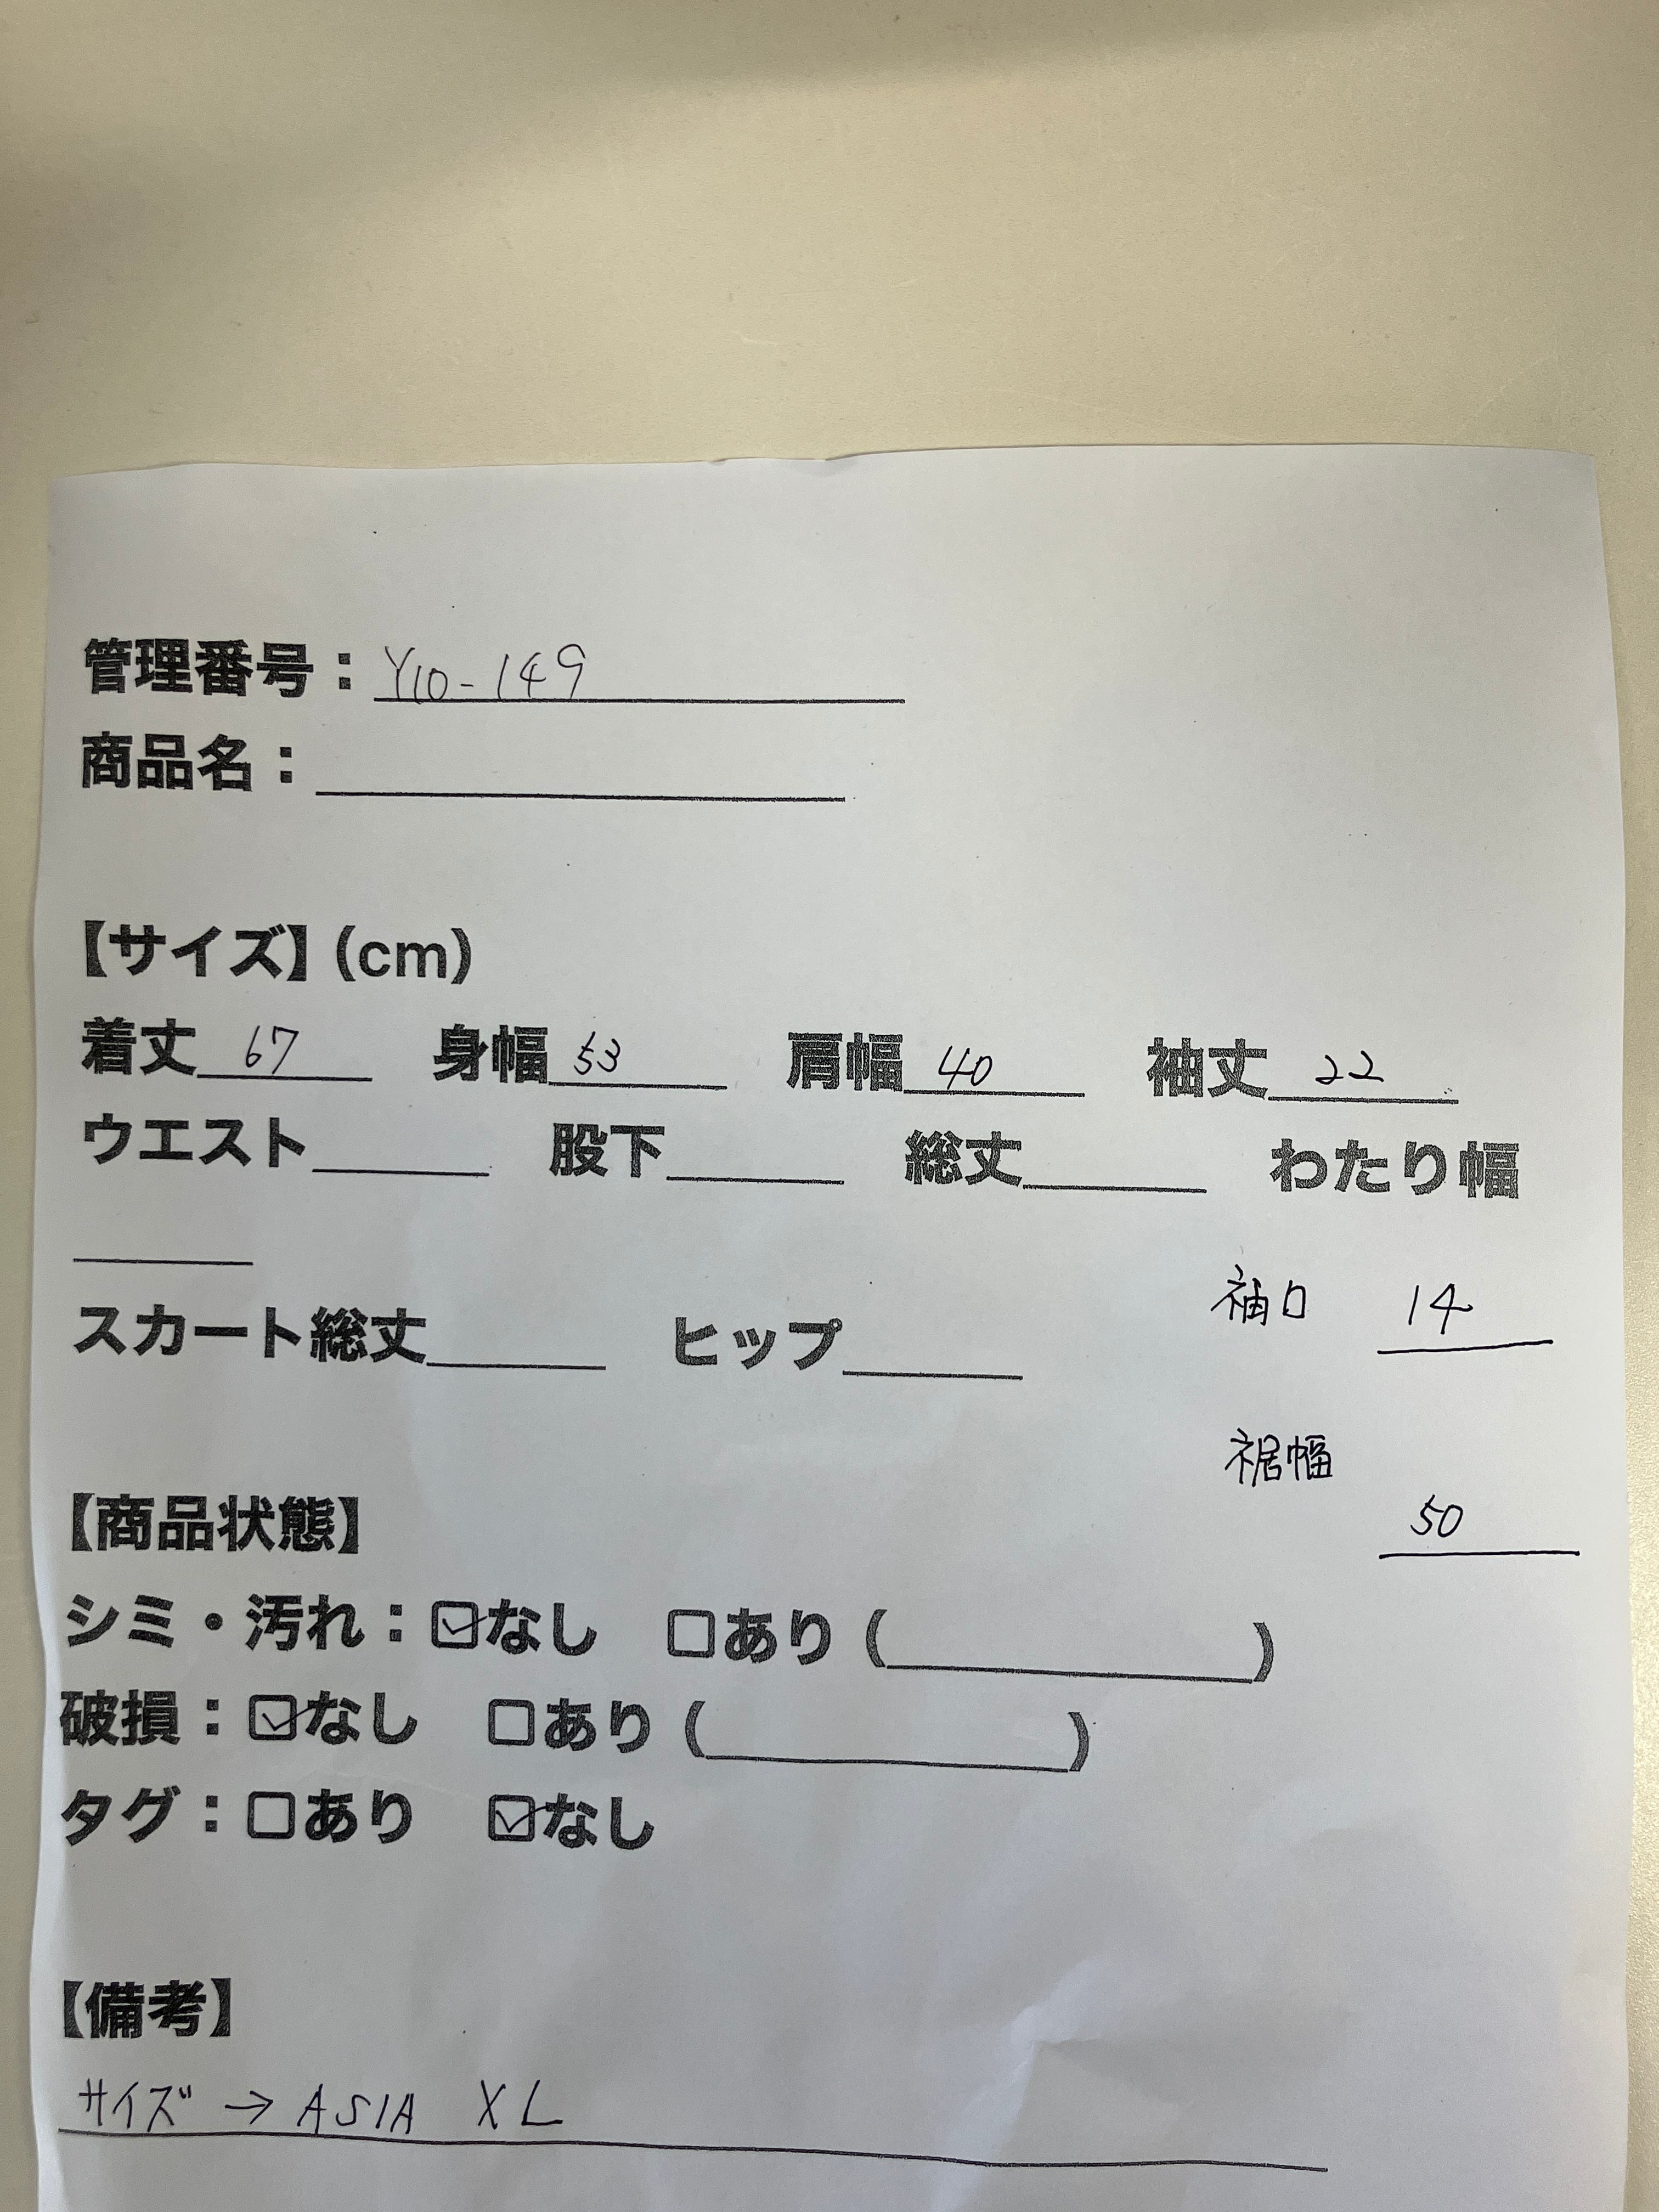 管理番号：Y10-149
商品名：
【サイズ】(cm)
着丈 67 身幅 53 肩幅 40 袖丈 22
ウエスト 股下 総丈 わたり幅
袖口 14
スカート総丈 ヒップ
裾幅
50
【商品状態】
シミ・汚れ：☑なし □あり（ ）
破損：☑なし □あり（ ）
タグ：□あり ☑なし
【備考】
サイズ → ASIA XL